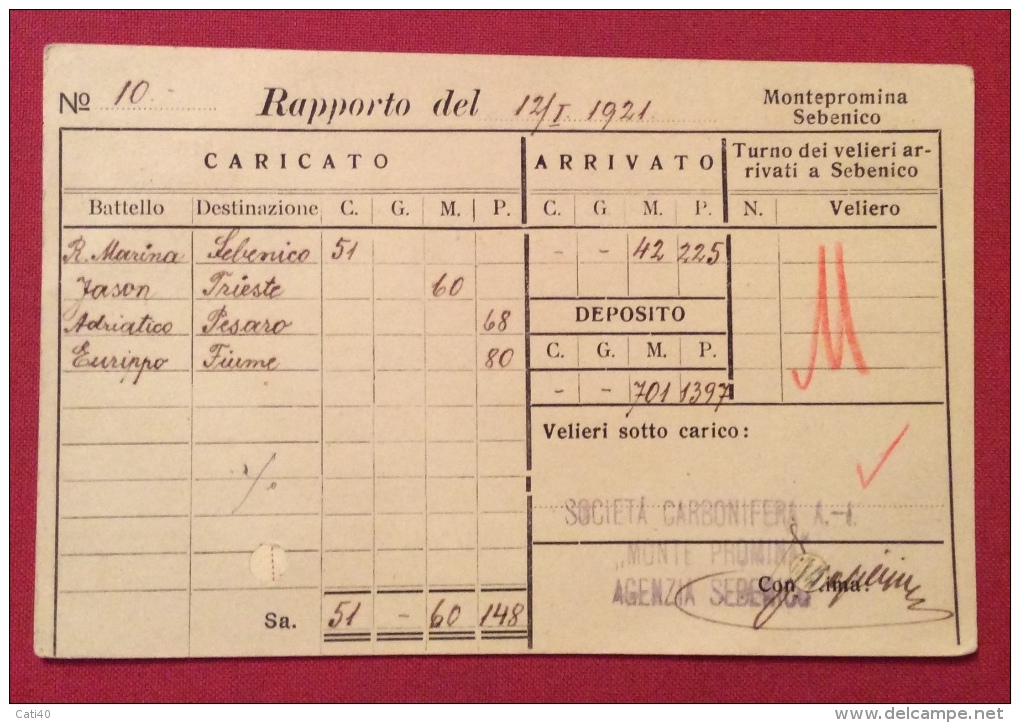 Nº 10.- Rapporto del 12/I. 1921. Montepromina
Sebenico
CARICATO ARRIVATO Turno dei velieri ar-
rivati a Sebenico
Battello Destinazione C. G. M. P. C. G M. P. N. Veliero
R. Marina Sebenico 51 - - 42 225
Jason Trieste 60
Adriatico Pesaro 68 DEPOSITO
Eurippo Fiume 80 C. G. M. P.
- - 701 1397
Velieri sotto carico:
SOCIETÀ CARBONIFERA A.-I.
"MONTE PROMINA"
AGENZIA SEBENICO
Sa. 51 - 60 148
Cati40
delcampe.net